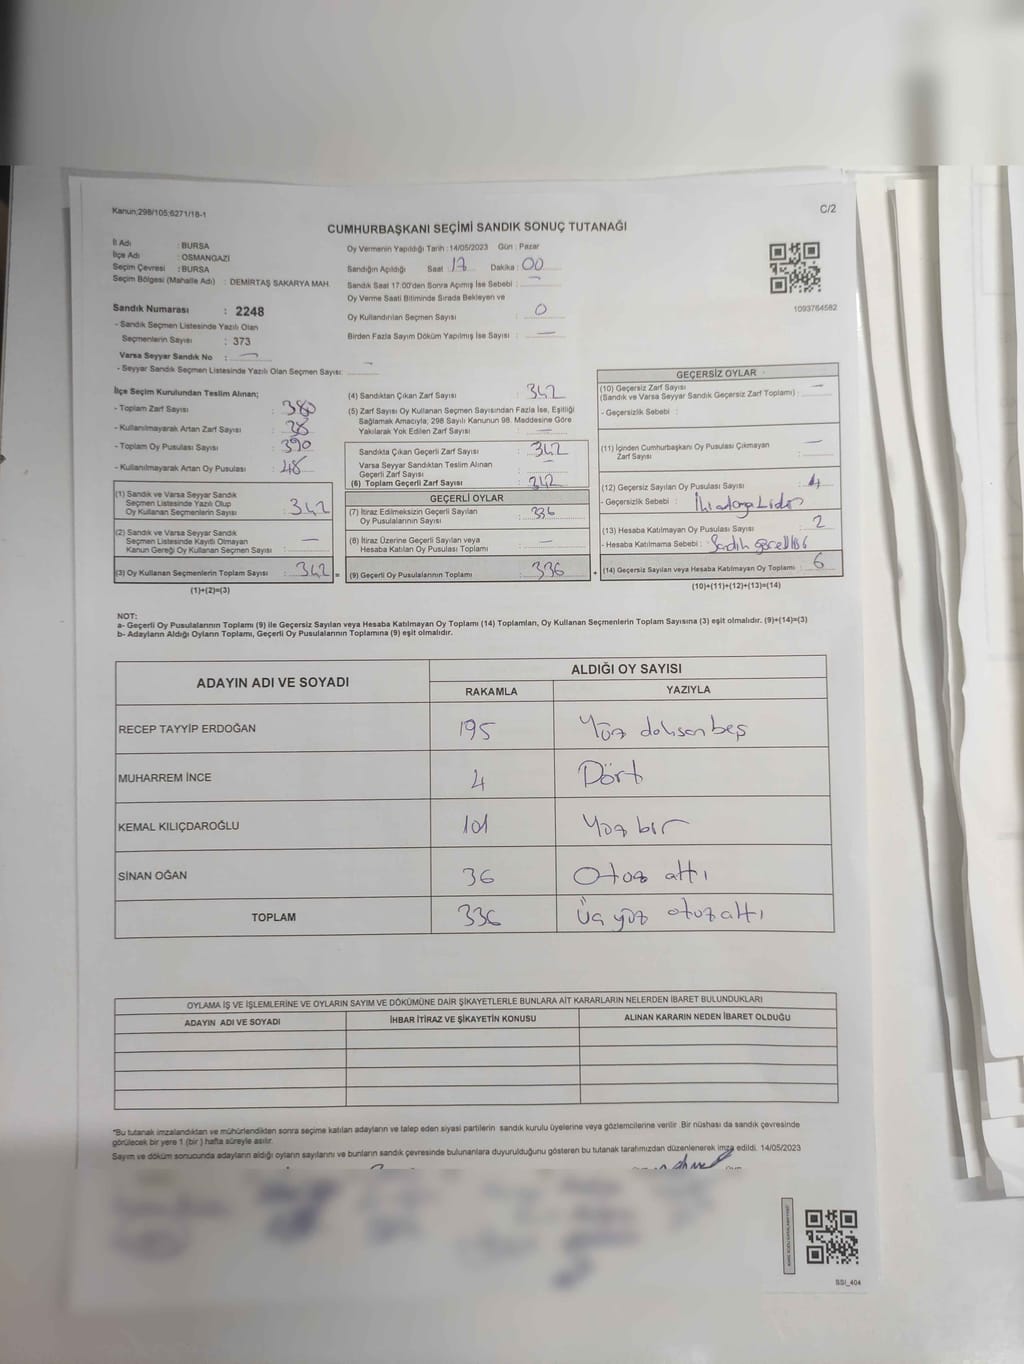 Kanun;298/105;6271/18-1
C/2
CUMHURBAŞKANI SEÇİMİ SANDIK SONUÇ TUTANAĞI
İl Adı : BURSA
İlçe Adı : OSMANGAZİ
Seçim Çevresi : BURSA
Seçim Bölgesi (Mahalle Adı) : DEMİRTAŞ SAKARYA MAH.
Sandık Numarası : 2248
- Sandık Seçmen Listesinde Yazılı Olan
Seçmenlerin Sayısı : 373
Varsa Seyyar Sandık No : —
- Seyyar Sandık Seçmen Listesinde Yazılı Olan Seçmen Sayısı: —
Oy Vermenin Yapıldığı Tarih : 14/05/2023 Gün : Pazar
Sandığın Açıldığı Saat : 17 Dakika : 00
Sandık Saat 17:00'den Sonra Açılmış İse Sebebi : —
Oy Verme Saati Bitiminde Sırada Bekleyen ve
Oy Kullandırılan Seçmen Sayısı : 0
Birden Fazla Sayım Döküm Yapılmış İse Sayısı : —
1093764582
İlçe Seçim Kurulundan Teslim Alınan;
- Toplam Zarf Sayısı : 380
- Kullanılmayarak Artan Zarf Sayısı : 38
- Toplam Oy Pusulası Sayısı : 390
- Kullanılmayarak Artan Oy Pusulası : 48
(1) Sandık ve Varsa Seyyar Sandık
Seçmen Listesinde Yazılı Olup
Oy Kullanan Seçmenlerin Sayısı : 342
(2) Sandık ve Varsa Seyyar Sandık
Seçmen Listesinde Kayıtlı Olmayan
Kanun Gereği Oy Kullanan Seçmen Sayısı : —
(3) Oy Kullanan Seçmenlerin Toplam Sayısı : 342 =
(1)+(2)=(3)
(4) Sandıktan Çıkan Zarf Sayısı : 342
(5) Zarf Sayısı Oy Kullanan Seçmen Sayısından Fazla İse, Eşitliği
Sağlamak Amacıyla; 298 Sayılı Kanunun 98. Maddesine Göre
Yakılarak Yok Edilen Zarf Sayısı : —
Sandıkta Çıkan Geçerli Zarf Sayısı : 342
Varsa Seyyar Sandıktan Teslim Alınan
Geçerli Zarf Sayısı : —
(6) Toplam Geçerli Zarf Sayısı : 342
GEÇERLİ OYLAR
(7) İtiraz Edilmeksizin Geçerli Sayılan
Oy Pusulalarının Sayısı : 336
(8) İtiraz Üzerine Geçerli Sayılan veya
Hesaba Katılan Oy Pusulası Toplamı : —
(9) Geçerli Oy Pusulalarının Toplamı : 336 +
GEÇERSİZ OYLAR
(10) Geçersiz Zarf Sayısı
(Sandık ve Varsa Seyyar Sandık Geçersiz Zarf Toplamı) : —
- Geçersizlik Sebebi :
(11) İçinden Cumhurbaşkanı Oy Pusulası Çıkmayan
Zarf Sayısı : —
(12) Geçersiz Sayılan Oy Pusulası Sayısı : 4
- Geçersizlik Sebebi :
(13) Hesaba Katılmayan Oy Pusulası Sayısı : 2
- Hesaba Katılmama Sebebi : Sandık
(14) Geçersiz Sayılan veya Hesaba Katılmayan Oy Toplamı : 6
(10)+(11)+(12)+(13)=(14)
NOT:
a- Geçerli Oy Pusulalarının Toplamı (9) ile Geçersiz Sayılan veya Hesaba Katılmayan Oy Toplamı (14) Toplamları, Oy Kullanan Seçmenlerin Toplam Sayısına (3) eşit olmalıdır. (9)+(14)=(3)
b- Adayların Aldığı Oyların Toplamı, Geçerli Oy Pusulalarının Toplamına (9) eşit olmalıdır.
ADAYIN ADI VE SOYADI
ALDIĞI OY SAYISI
RAKAMLA YAZIYLA
RECEP TAYYİP ERDOĞAN 195 Yüz doksan beş
MUHARREM İNCE 4 Dört
KEMAL KILIÇDAROĞLU 101 Yüz bir
SİNAN OĞAN 36 Otuz altı
TOPLAM 336 Üç yüz otuz altı
OYLAMA İŞ VE İŞLEMLERİNE VE OYLARIN SAYIM VE DÖKÜMÜNE DAİR ŞİKAYETLERLE BUNLARA AİT KARARLARIN NELERDEN İBARET BULUNDUKLARI
ADAYIN ADI VE SOYADI İHBAR İTİRAZ VE ŞİKAYETİN KONUSU ALINAN KARARIN NEDEN İBARET OLDUĞU
*Bu tutanak imzalandıktan ve mühürlendikten sonra seçime katılan adayların ve talep eden siyasi partilerin sandık kurulu üyelerine veya gözlemcilerine verilir. Bir nüshası da sandık çevresinde
görülecek bir yere 1 (bir) hafta süreyle asılır.
Sayım ve döküm sonucunda adayların aldığı oyların sayılarını ve bunların sandık çevresinde bulunanlara duyurulduğunu gösteren bu tutanak tarafımızdan düzenlenerek imza edildi. 14/05/2023
SSI_404